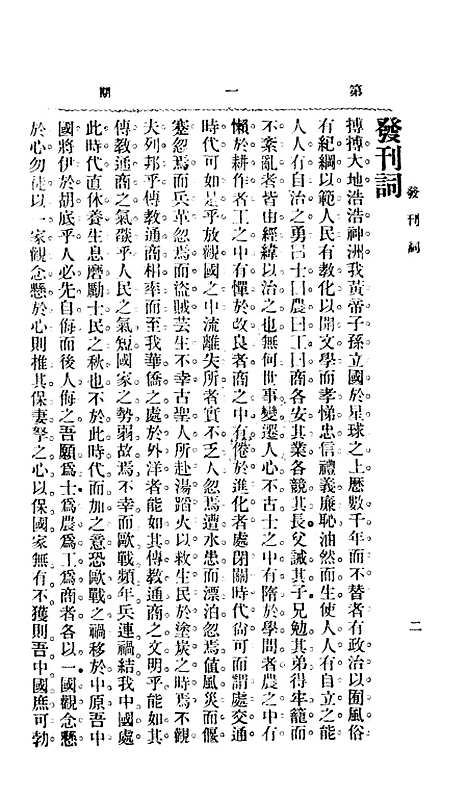 第一期
發刊詞
二
發刊詞
搏搏大地。浩浩神洲。我黃帝子孫。立國於星球之上。歷數千年而不替者。有政治以囿風俗。
有紀綱以範人民。有教化以開文學。而孝悌忠信禮義廉恥。油然而生。使人人有自立之能。
人人有自治之勇。曰士曰農曰工曰商。各安其業。各競其長。父誡其子。兄勉其弟。得牢籠而
不紊亂者。皆由經緯以治之也。無何世事變遷。人心不古。士之中有隋於學問者。農之中有
懶於耕作者。工之中有憚於改良者。商之中有倦於進化者。處閉關時代。尙可而謂處交通
時代可如是乎。放觀國之中。流離失所者。實不乏人。忽焉遭水患而漂泊。忽焉値風災而偃
蹇。忽焉而兵革。忽焉而盜賊。芸生不幸。古聖人所赴湯蹈火。以救生民於塗炭之時焉。不觀
夫列邦乎。傳教通商。相率而至。我華僑之處於外洋者。能如其傳教通商之文明乎。能如其
傳教通商之氣燄乎。人民之氣短。國家之勢弱故焉。不幸而歐戰頻年。兵連禍結。我中國處
此時代。直休養生息磨勵士民之秋也。不於此時代而加之意。恐歐戰之禍移於中原。吾中
國將伊於胡底乎。人必先自侮而後人侮之。吾願爲士爲農爲工爲商者。各以一國觀念懸
於心。勿徒以一家觀念懸於心。則推其保妻孥之心以保國家。無有不獲。則吾中國庶可勃